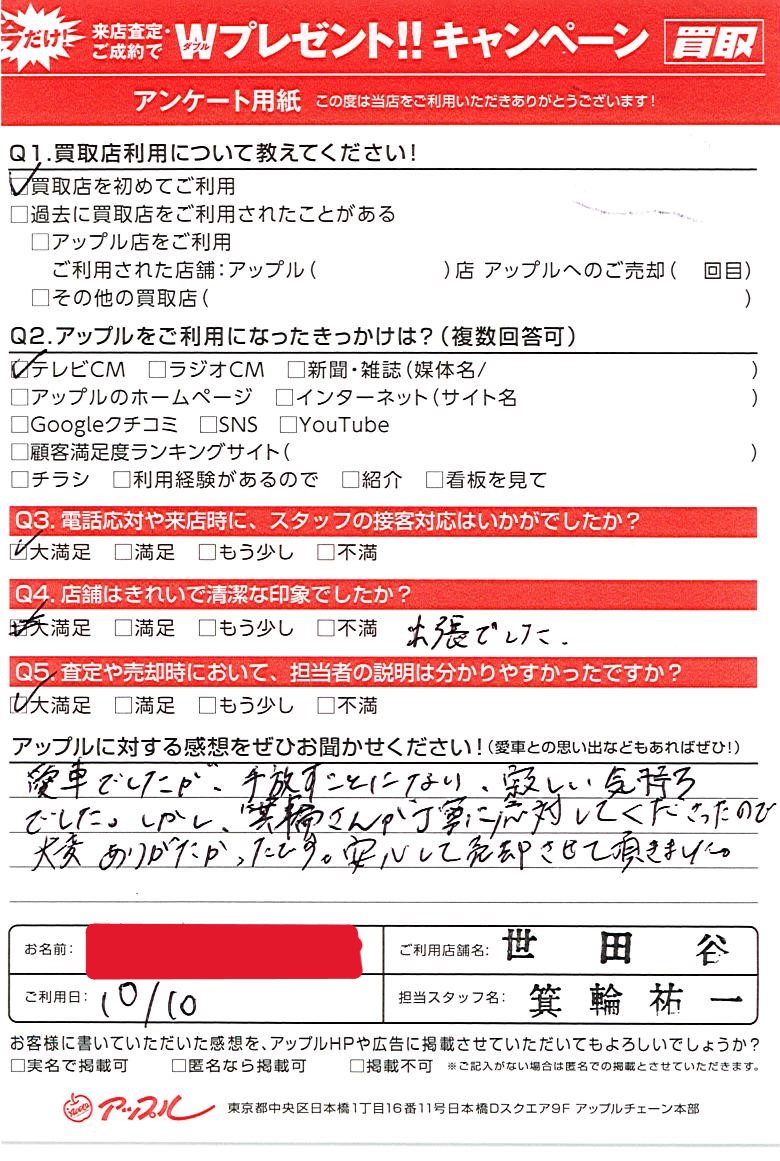 今だけ!
来店査定・
ご成約で
W
ダブル
プレゼント!! キャンペーン
買取
アンケート用紙 この度は当店をご利用いただきありがとうございます!
Q1.買取店利用について教えてください!
☑買取店を初めてご利用
□過去に買取店をご利用されたことがある
□アップル店をご利用
ご利用された店舗:アップル( )店 アップルへのご売却( 回目)
□その他の買取店( )
Q2.アップルをご利用になったきっかけは?(複数回答可)
☑テレビCM □ラジオCM □新聞・雑誌(媒体名/ )
□アップルのホームページ □インターネット(サイト名 )
□Googleクチコミ □SNS □YouTube
□顧客満足度ランキングサイト( )
□チラシ □利用経験があるので □紹介 □看板を見て
Q3. 電話応対や来店時に、スタッフの接客対応はいかがでしたか?
☑大満足 □満足 □もう少し □不満
Q4. 店舗はきれいで清潔な印象でしたか?
☑大満足 □満足 □もう少し □不満 出張でした.
Q5. 査定や売却時において、担当者の説明は分かりやすかったですか?
☑大満足 □満足 □もう少し □不満
アップルに対する感想をぜひお聞かせください!(愛車との思い出などもあればぜひ!)
愛車でしたが、手放すことになり、寂しい気持ち
でした。しかし、箕輪さんが丁寧に応対してくださったので
大変ありがたかったです。安心して売却させて頂きました。
お名前:
ご利用店舗名: 世田谷
ご利用日: 10/10
担当スタッフ名: 箕輪祐一
お客様に書いていただいた感想を、アップルHPや広告に掲載させていただいてもよろしいでしょうか?
□実名で掲載可 □匿名なら掲載可 □掲載不可 ※ご記入がない場合は匿名での掲載とさせていただきます。
アップル 東京都中央区日本橋1丁目16番11号日本橋Dスクエア9F アップルチェーン本部